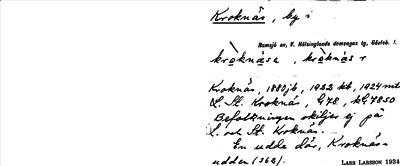 Kroknäs, by i
Ramsjö sn, V. Hälsinglands domsagas tg, Gävleb. l.
kròknäsa, kròknäs r
Kroknäs, 1880 jb, 1922 kb, 1924 mtl
L. St. Kroknäs, G78, kG7850
Befolkningen skiljer ej på
L. och St. Kroknäs.
En udde där, Kroknäs-
udden (562).
LARS LARSSON 1934